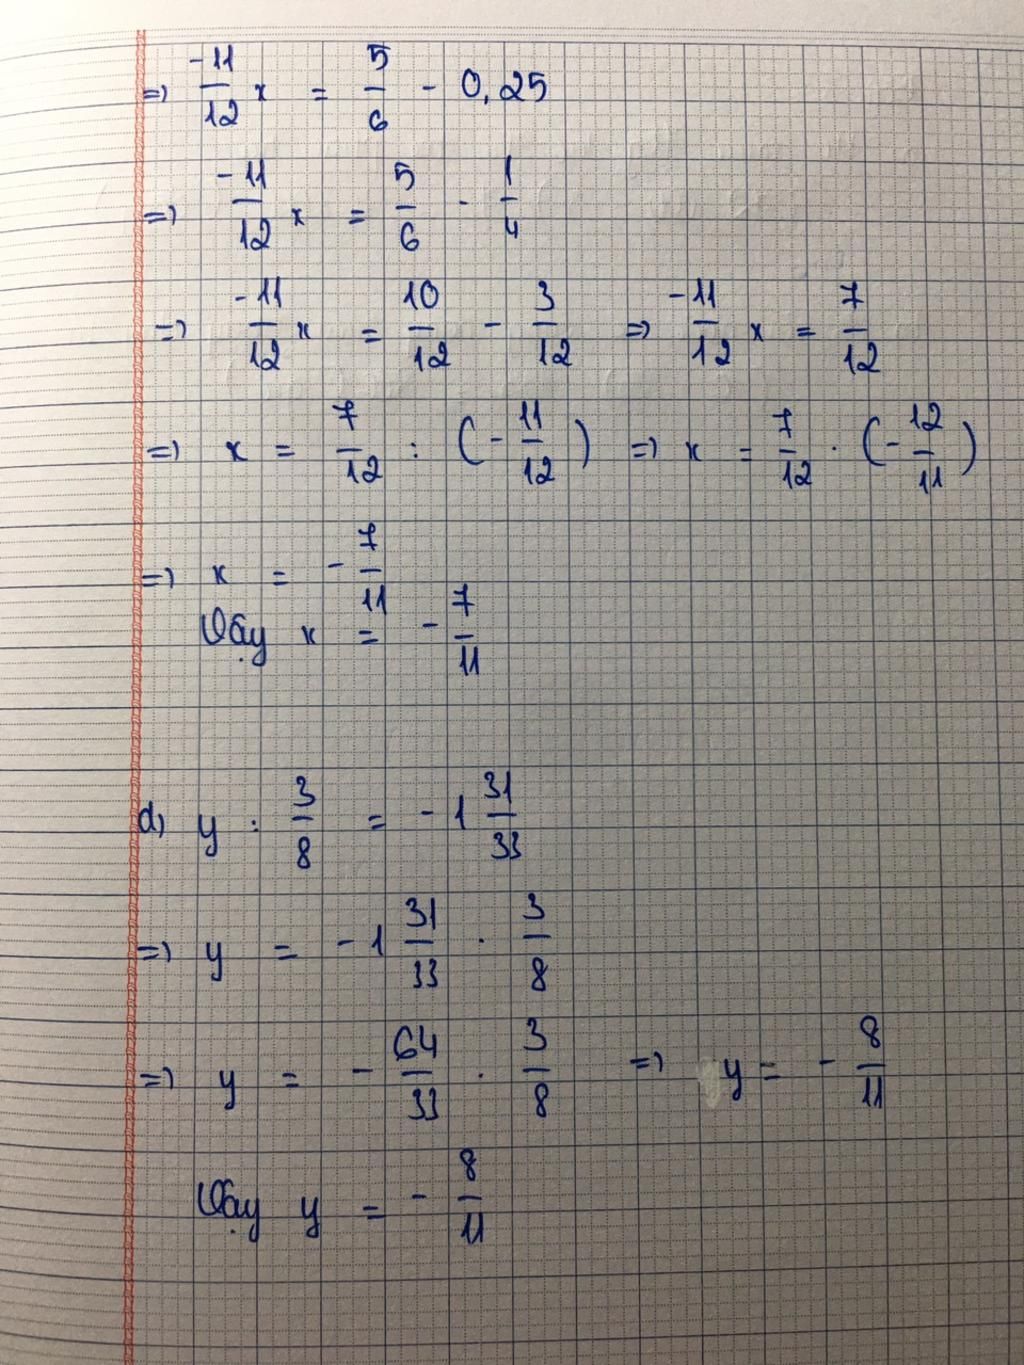 =) -11/12 x = 5/6 - 0,25
=) -11/12 x = 5/6 - 1/4
=) -11/12 x = 10/12 - 3/12 =) -11/12 x = 7/12
=) x = 7/12 : (- 11/12) =) x = 7/12 . (- 12/11)
=) x = - 7/11
Vậy x = - 7/11
d) y : 3/8 = - 1 31/33
=) y = - 1 31/33 . 3/8
=) y = - 64/33 . 3/8 =) y = - 8/11
Vậy y = - 8/11